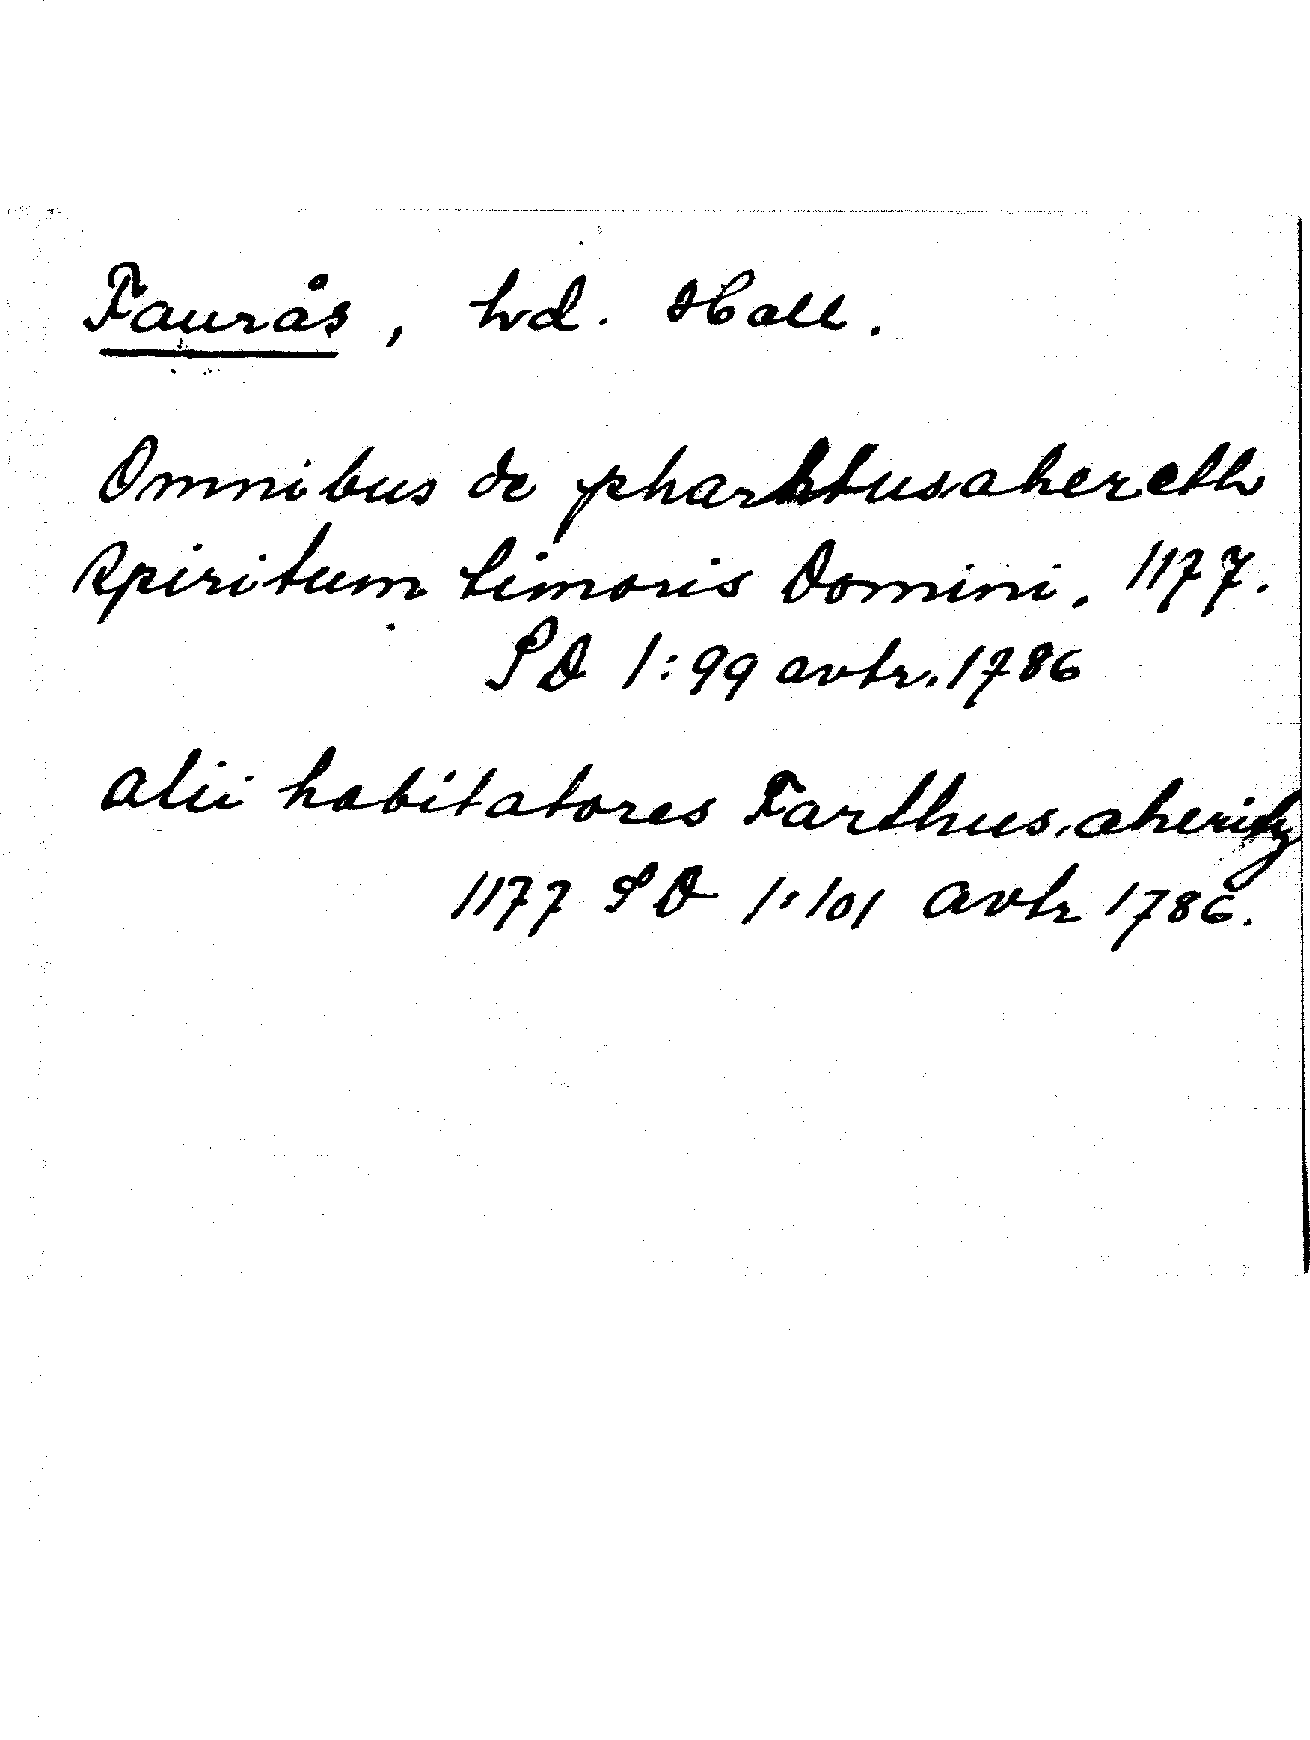 Faurås, hd. Hall.
Omnibus de pharhtusahereth
spiritum timoris Domini. 1177.
SD 1:99 avtr. 1786
alii habitatores Farthusaherith
1177 SD 1:101 avtr 1786.